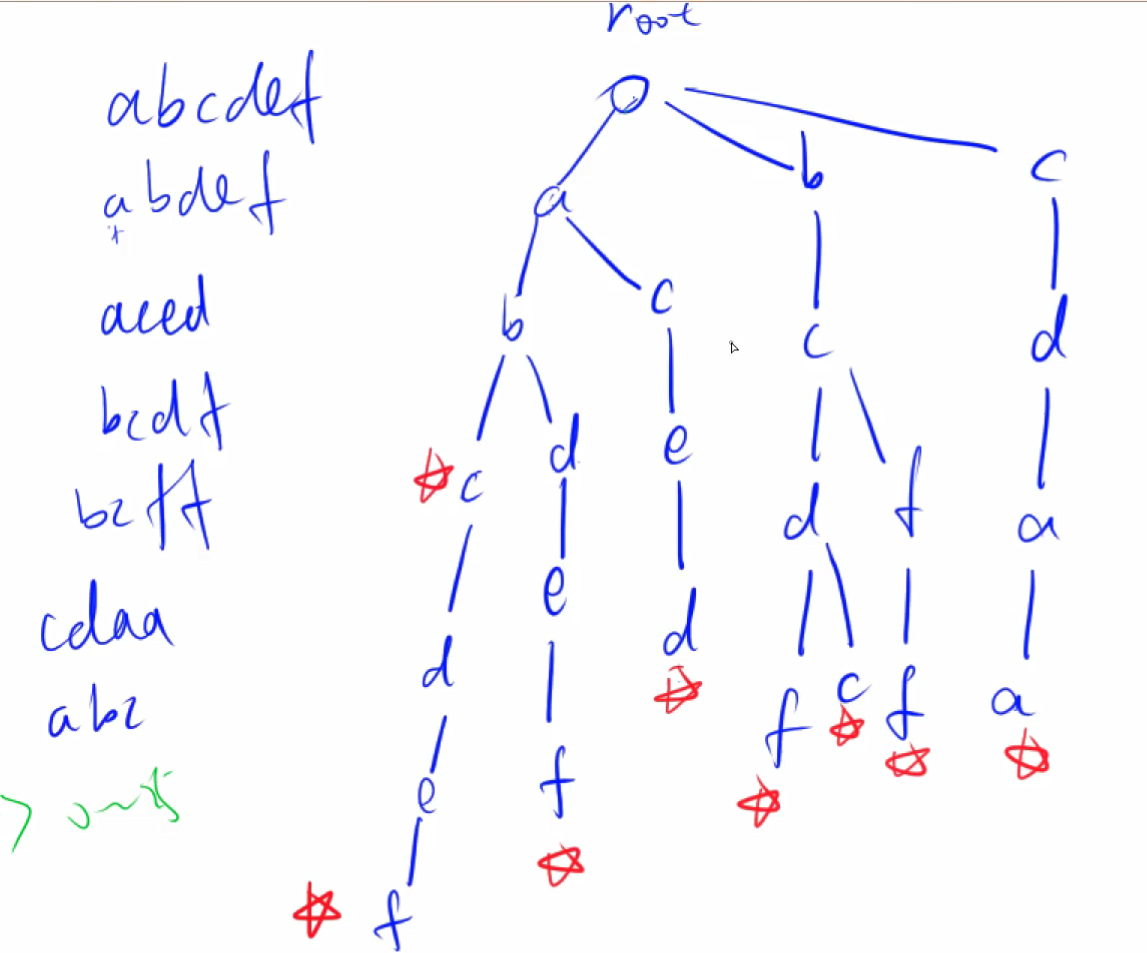 root
abcdef
abdef
aced
bcdf
bcff
cdaa
abc
b
c
a
c
b
c
d
d
e
c
d
f
a
e
d
d
c
f
a
f
e
f
f